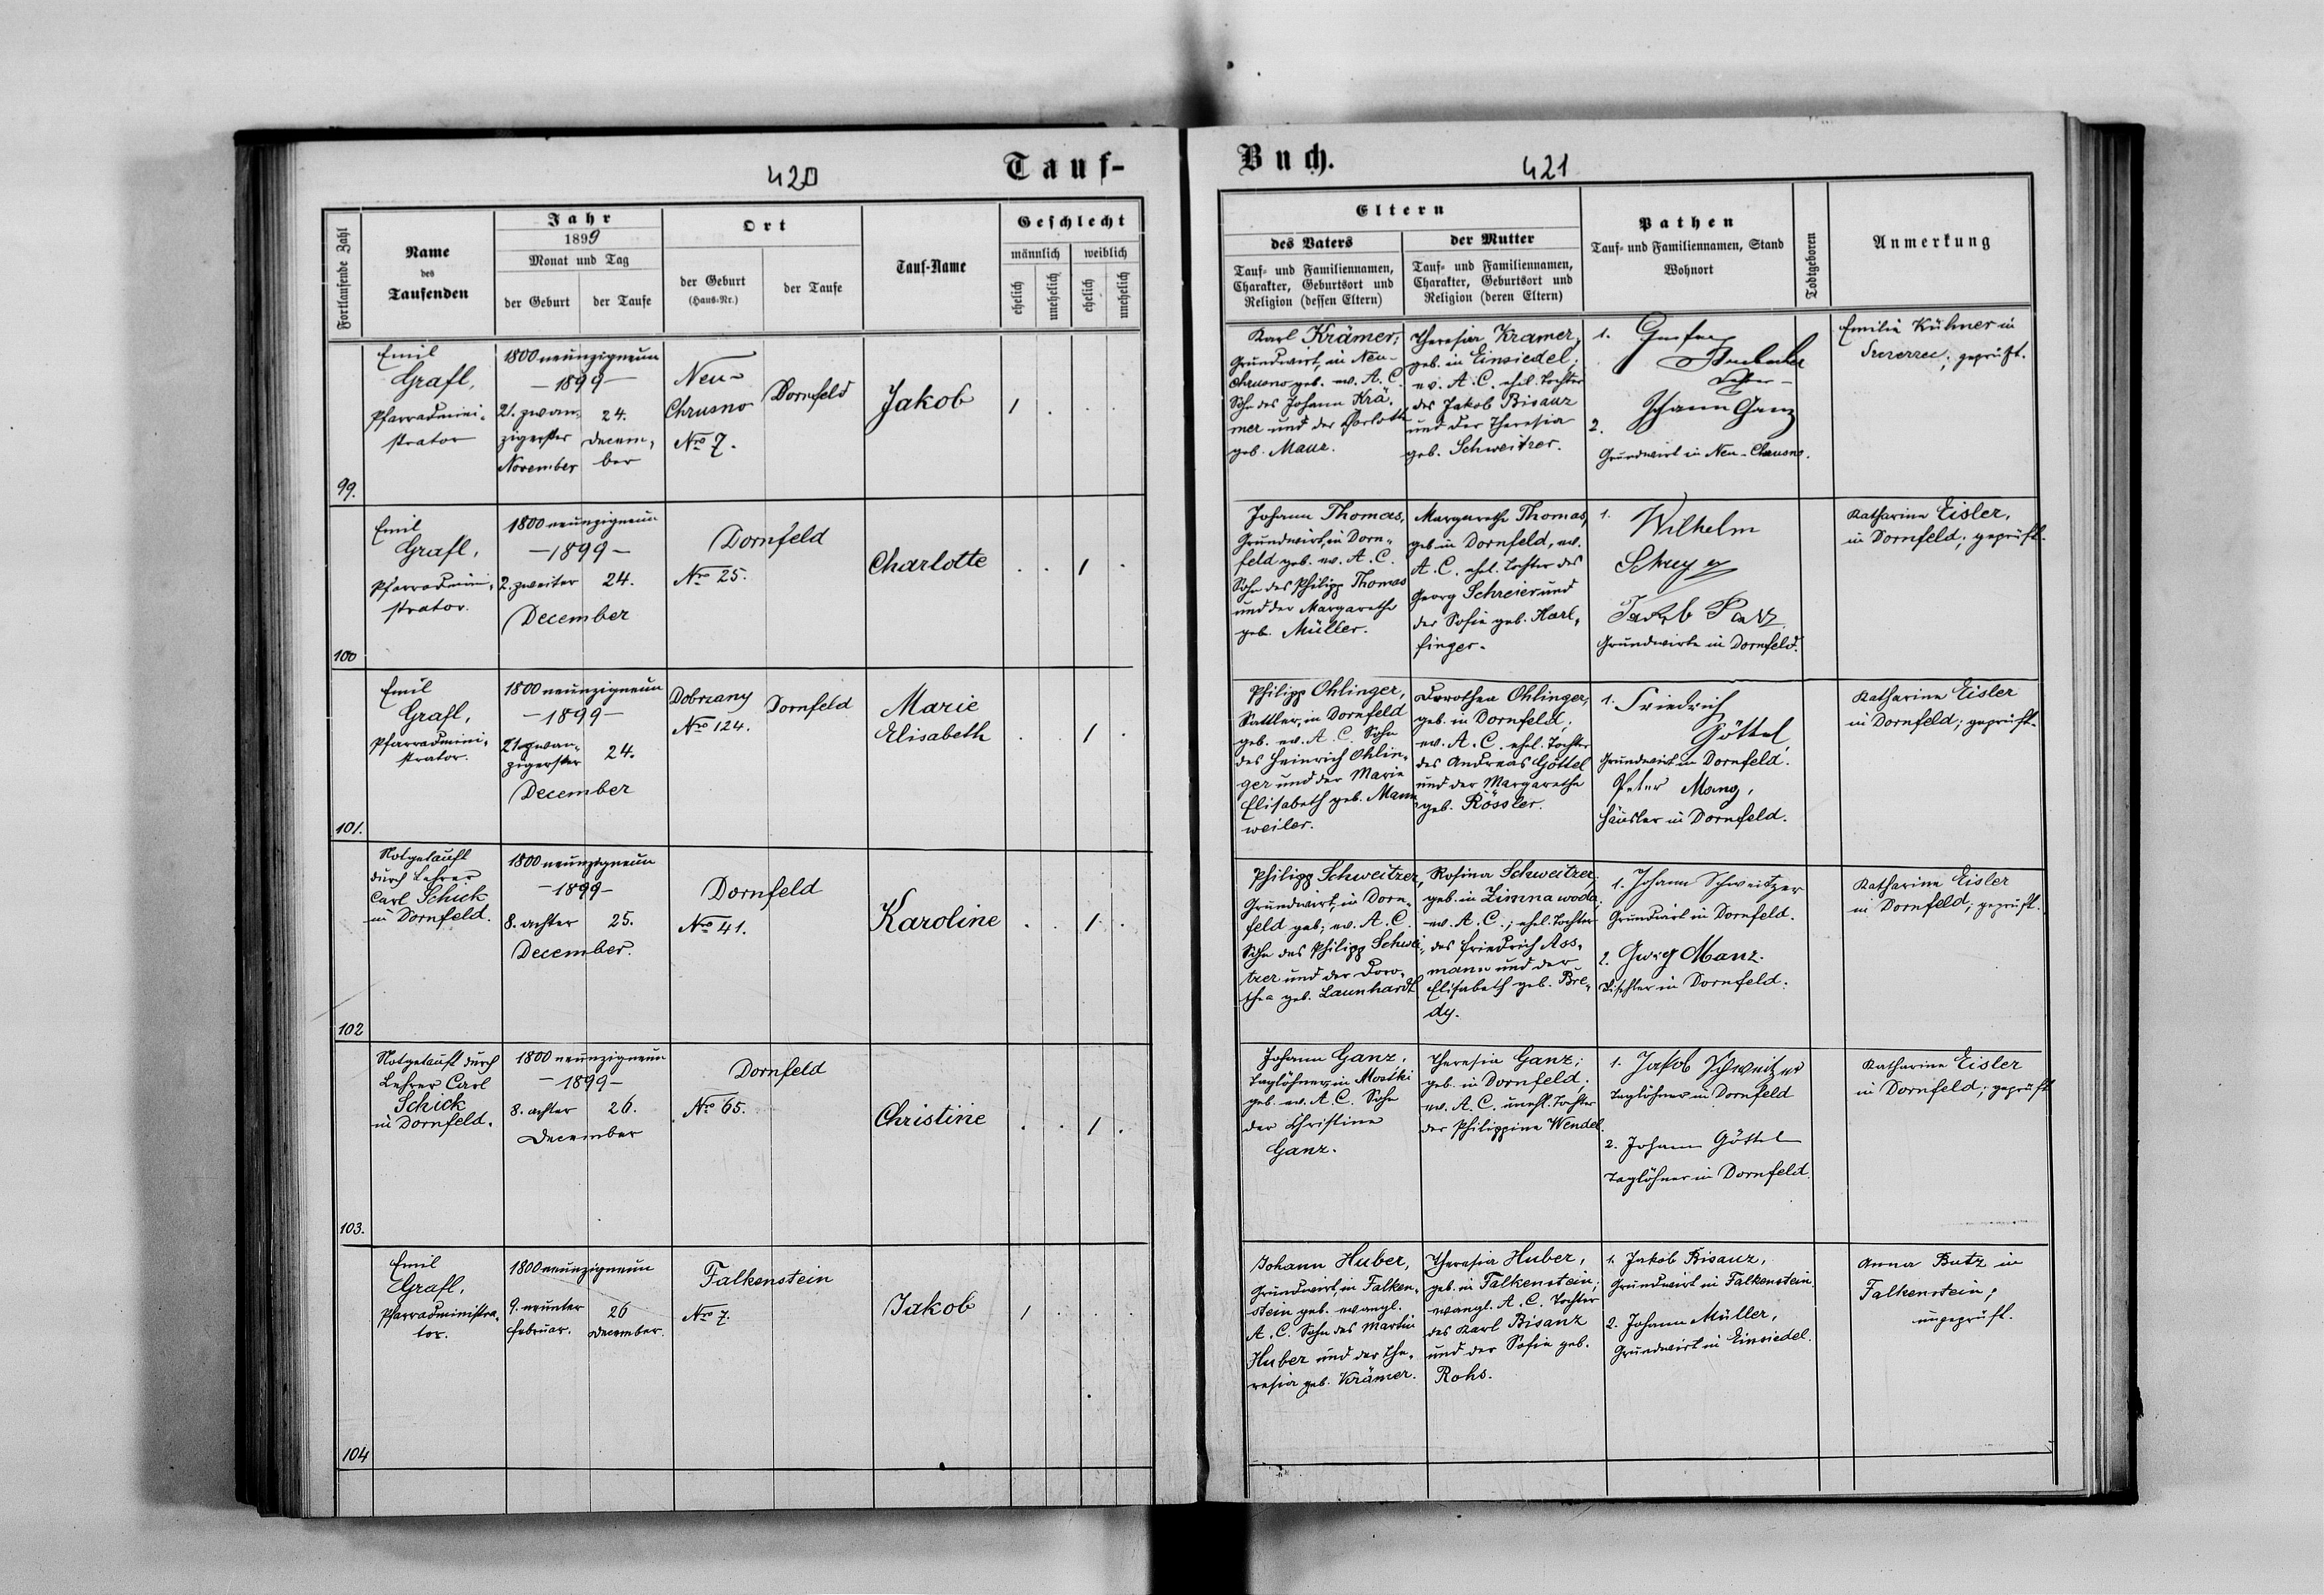 420
Tauf-
Fortlaufende Zahl
Name
des
Taufenden
Jahr
1899
Monat und Tag
der Geburt
der Taufe
Ort
der Geburt
(Haus-Nr.)
der Taufe
Tauf-Name
Geschlecht
männlich
weiblich
ehelich
unehelich
ehelich
unehelich
99.
Emil
Grafl,
Pfarradmini-
strator
1800 neunzigneun
— 1899 —
21. zwan-
zigerster
November
24.
Decem-
ber
Neu-
Chrusno
Nro 7.
Dornfeld
Jakob
1 . . .
100
Emil
Grafl,
Pfarradmini-
strator.
1800 neunzigneun
— 1899 —
2. zweiter 24.
December
Dornfeld
Nro 25.
Charlotte
. . 1 .
101.
Emil
Grafl,
Pfarradmini-
strator.
1800 neunzigneun
— 1899 —
21. zwan-
zigerster
24.
December
Dobrzany
Nro 124.
Dornfeld
Marie
Elisabeth
. . 1 .
102
Notgetauft
durch Lehrer
Carl Schick
in Dornfeld.
1800 neunzigneun
— 1899 —
8. achter 25.
December.
Dornfeld
Nro 41.
Karoline
. . 1 .
103.
Notgetauft durch
Lehrer Carl
Schick
in Dornfeld.
1800 neunzigneun
— 1899 —
8. achter 26.
December
Dornfeld
Nro 65.
Christine
. . 1 .
104
Emil
Grafl,
Pfarradministra-
tor.
1800 neunzigneun
9. neunter
Februar.
26
December.
Falkenstein
Nro 7.
Jakob
1 . . .
Buch.
421
Eltern
des Vaters
Tauf- und Familiennamen,
Charakter, Geburtsort und
Religion (dessen Eltern)
der Mutter
Tauf- und Familiennamen,
Charakter, Geburtsort und
Religion (deren Eltern)
Pathen
Tauf- und Familiennamen, Stand
Wohnort
Todtgeboren
Anmerkung
Karl Krämer,
Grundwirt, in Neu-
Chrusno geb. ev. A. C.
Sohn des Johann Krä-
mer und der Charlotte
geb. Mauz.
Theresia Kramer,
geb. in Einsiedel;
ev. A. C. ehel. Tochter
des Jakob Bisanz
und der Theresia
geb. Schweitzer.
1.
Lehrer
2. Johann Ganz
Grundwirt in Neu-Chrusno.
Emilie Kühner in
geprüft.
Johann Thomas,
Grundwirt, in Dorn-
feld geb. ev. A. C.
Sohn des Philipp Thomas
und der Margarethe
geb. Müller.
Margarethe Thomas,
geb. in Dornfeld, ev.
A. C. ehel. Tochter des
Georg Schreier und
der Sofie geb. Harl-
finger.
1. Wilhelm
Jakob
Grundwirte in Dornfeld.
Katharine Eisler,
in Dornfeld; geprüft.
Philipp Ohlinger,
Sattler, in Dornfeld
geb. ev. A. C. Sohn
des Heinrich Ohlin-
ger und der Marie
Elisabeth geb. Mann-
weiler.
Dorothea Ohlinger,
geb. in Dornfeld;
ev. A. C. ehel. Tochter
des Andreas Göttel
und der Margarethe
geb. Rössler.
1. Friedrich
Göttel
Grundwirt in Dornfeld.
Peter Mang,
Häusler in Dornfeld.
Katharine Eisler
in Dornfeld; geprüft.
Philipp Schweitzer,
Grundwirt, in Dorn-
feld geb; ev. A. C.
Sohn des Philipp Schwei-
tzer und der Doro-
thea geb. Launhardt
Rosina Schweitzer,
geb. in Zimnawoda
ev. A. C.; ehel. Tochter
des Friedrich Ass-
mann und der
Elisabeth geb. Bre-
dy.
1. Johann Schweitzer
Grundwirt in Dornfeld.
2. Georg Manz.
Tischler in Dornfeld.
Katharine Eisler
in Dornfeld; geprüft.
Johann Ganz,
Taglöhner, in Mostki
geb. ev. A. C. Sohn
der Christine
Ganz.
Theresia Ganz;
geb. in Dornfeld;
ev. A. C. unehl. Tochter
der Philippine Wendel.
1. Jakob Schweitzer
Taglöhner in Dornfeld
2. Johann Göttel
Taglöhner in Dornfeld.
Katharine Eisler
in Dornfeld; geprüft
Johann Huber,
Grundwirt, in Falken-
stein geb. evangl.
A. C. Sohn des Martin
Huber und der The-
resia geb. Krämer.
Theresia Huber,
geb. in Falkenstein;
evangl. A. C. Tochter
des Karl Bisanz
und der Sofie geb.
Rohs.
1. Jakob Bisanz,
Grundwirt in Falkenstein.
2. Johann Müller,
Grundwirt in Einsiedel.
Anna Butz in
Falkenstein,
ungeprüft.